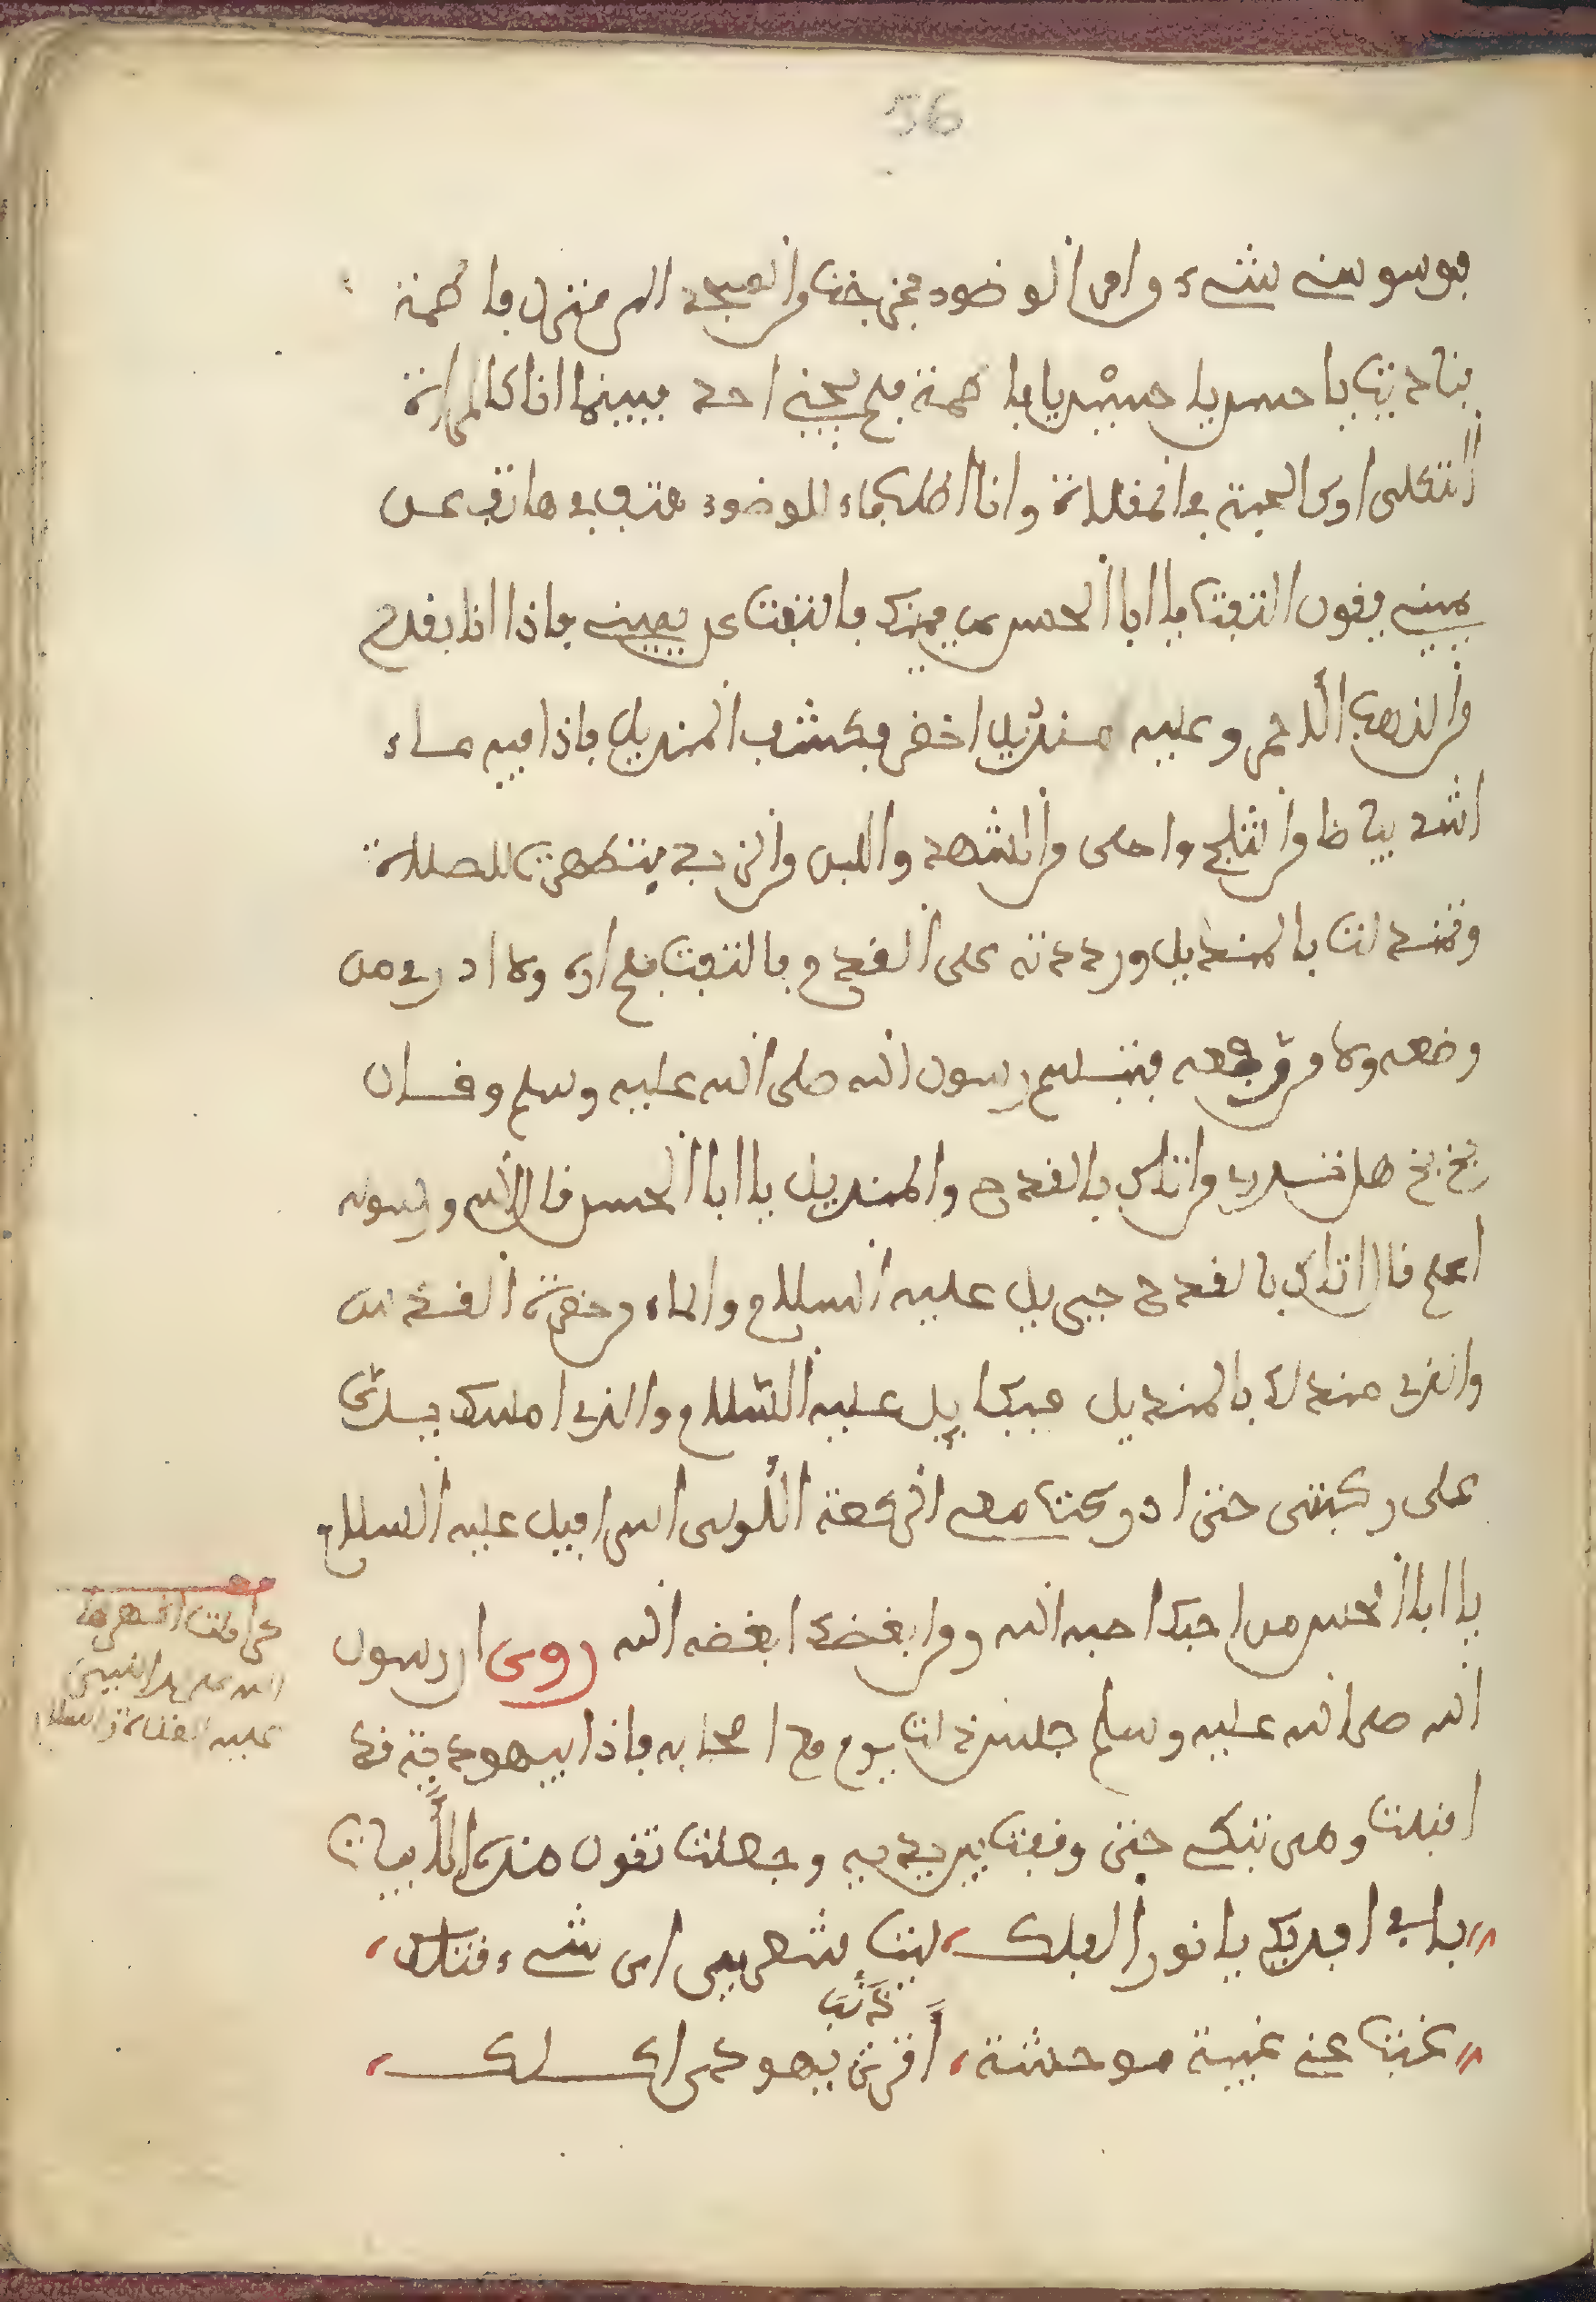 56
فوسوسني شيء من امر الوضوء فخرجت من المسجد الى منزل فاطمة
فناديت يا حسن يا حسين يا فاطمة فلم يجبني احد فبينما انا كالمراة
الثكلى او كالحبة في المقلاة وانا اطلب ماء للوضوء هتف بي هاتف عن
يميني يقول التفت يا ابا الحسن عن يمينك فالتفت عن يميني فاذا انا بقدح
من الذهب الاحمر وعليه منديل اخضر فكشفت المنديل فاذا فيه ماء
اشد بياضا من الثلج واحلى من الشهد والين من الزبد فتطهرت للصلاة
وتمندلت بالمنديل ورددته على القدح والتفت فلم ار ولا ادري من
وضعه ولا من رفعه فتبسم رسول الله صلى الله عليه وسلم وقال
بخ بخ هل تدري من اتاك بالقدح والمنديل يا ابا الحسن قال الله ورسوله
اعلم قال اتاك بالقدح جبريل عليه السلام والماء من حضرة القدس
والذي مندلك بالمنديل ميكاييل عليه السلام والذي امسك يدي
على ركبتي حتى ادركت معي الركعة الاولى اسرافيل عليه السلام
يا ابا الحسن من احبك احبه الله ومن ابغضك ابغضه الله روى ان رسول
الله صلى الله عليه وسلم جلس ذات يوم مع اصحابه فاذا بيهودية قد
اقبلت وهي تبكي حتى وقفت بين يديه وجعلت تقول هذه الابيات
بابي افديك يا نور الفلك، ليت شعري اي شيء قتلك،
كانت
غبت عني غيبة موحشة، اترى يهودي اكلك،
عليه الصلاة والسلام